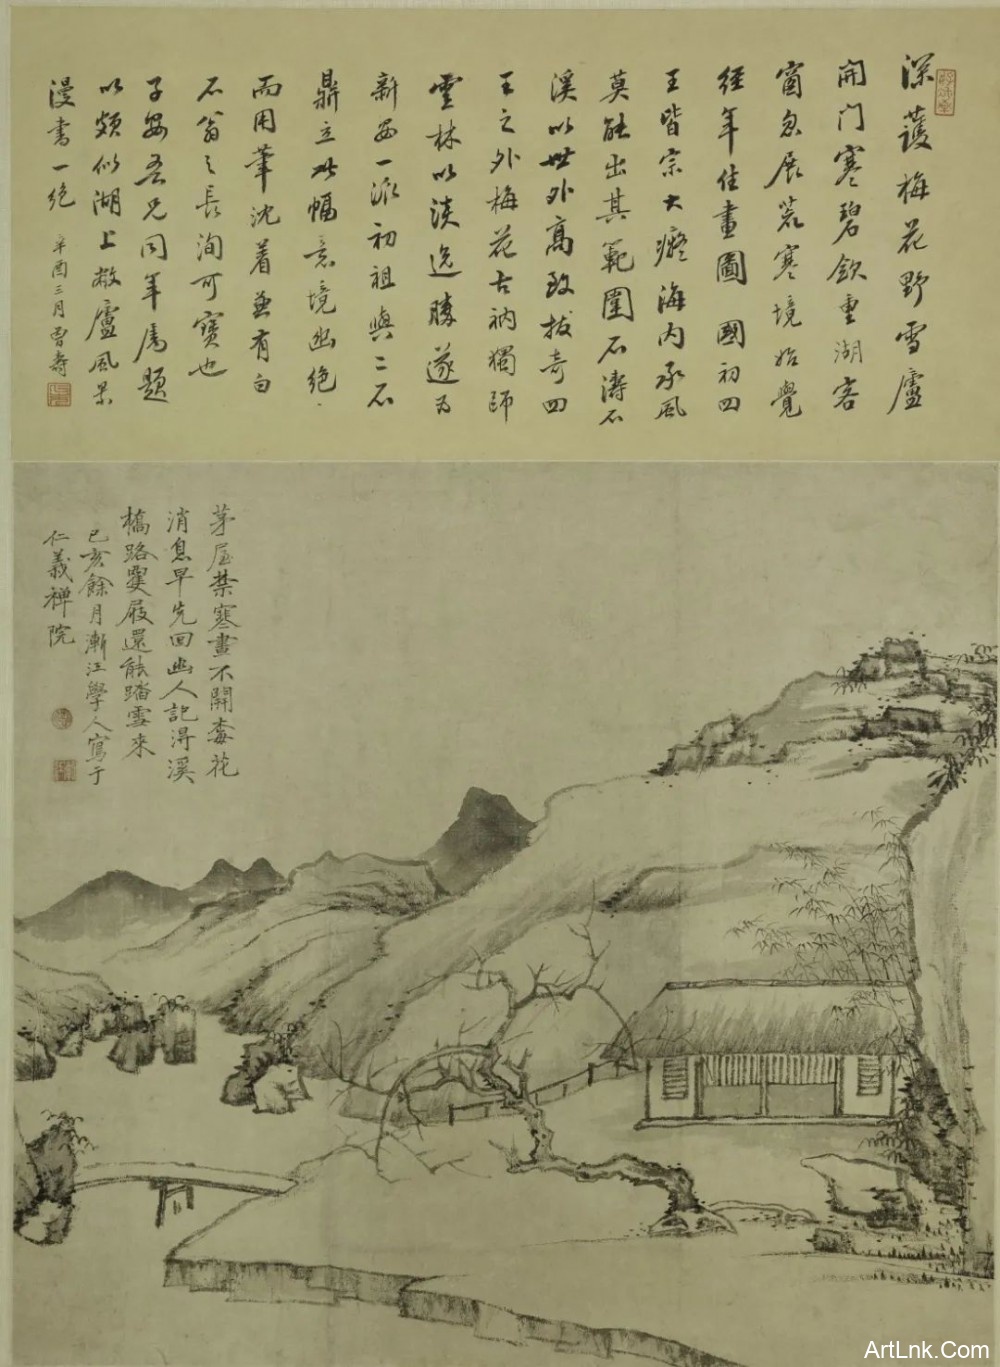 深護梅花野雪廬
開門寒碧飲重湖客
窗忽展荒寒境始覺
經年住畫圖 國初四
王皆宗大癡海內承風
莫能出其範圍石濤石
溪以世外高致拔奇四
王之外梅花古衲獨師
雲林以淡逸勝遂為
新安一派初祖與二石
鼎立此幅意境幽絕
而用筆沈着兼有白
石翁之長洵可寶也
子安吾兄同年屬題
以頗似湖上敝廬風景
漫書一絕 辛酉三月曾壽
茅屋禁寒晝不開梅花
消息早先回幽人記得溪
橋路雙屐還能踏雪來
己亥餘月漸江學人寫于
仁義禅院
ArtLnk.Com